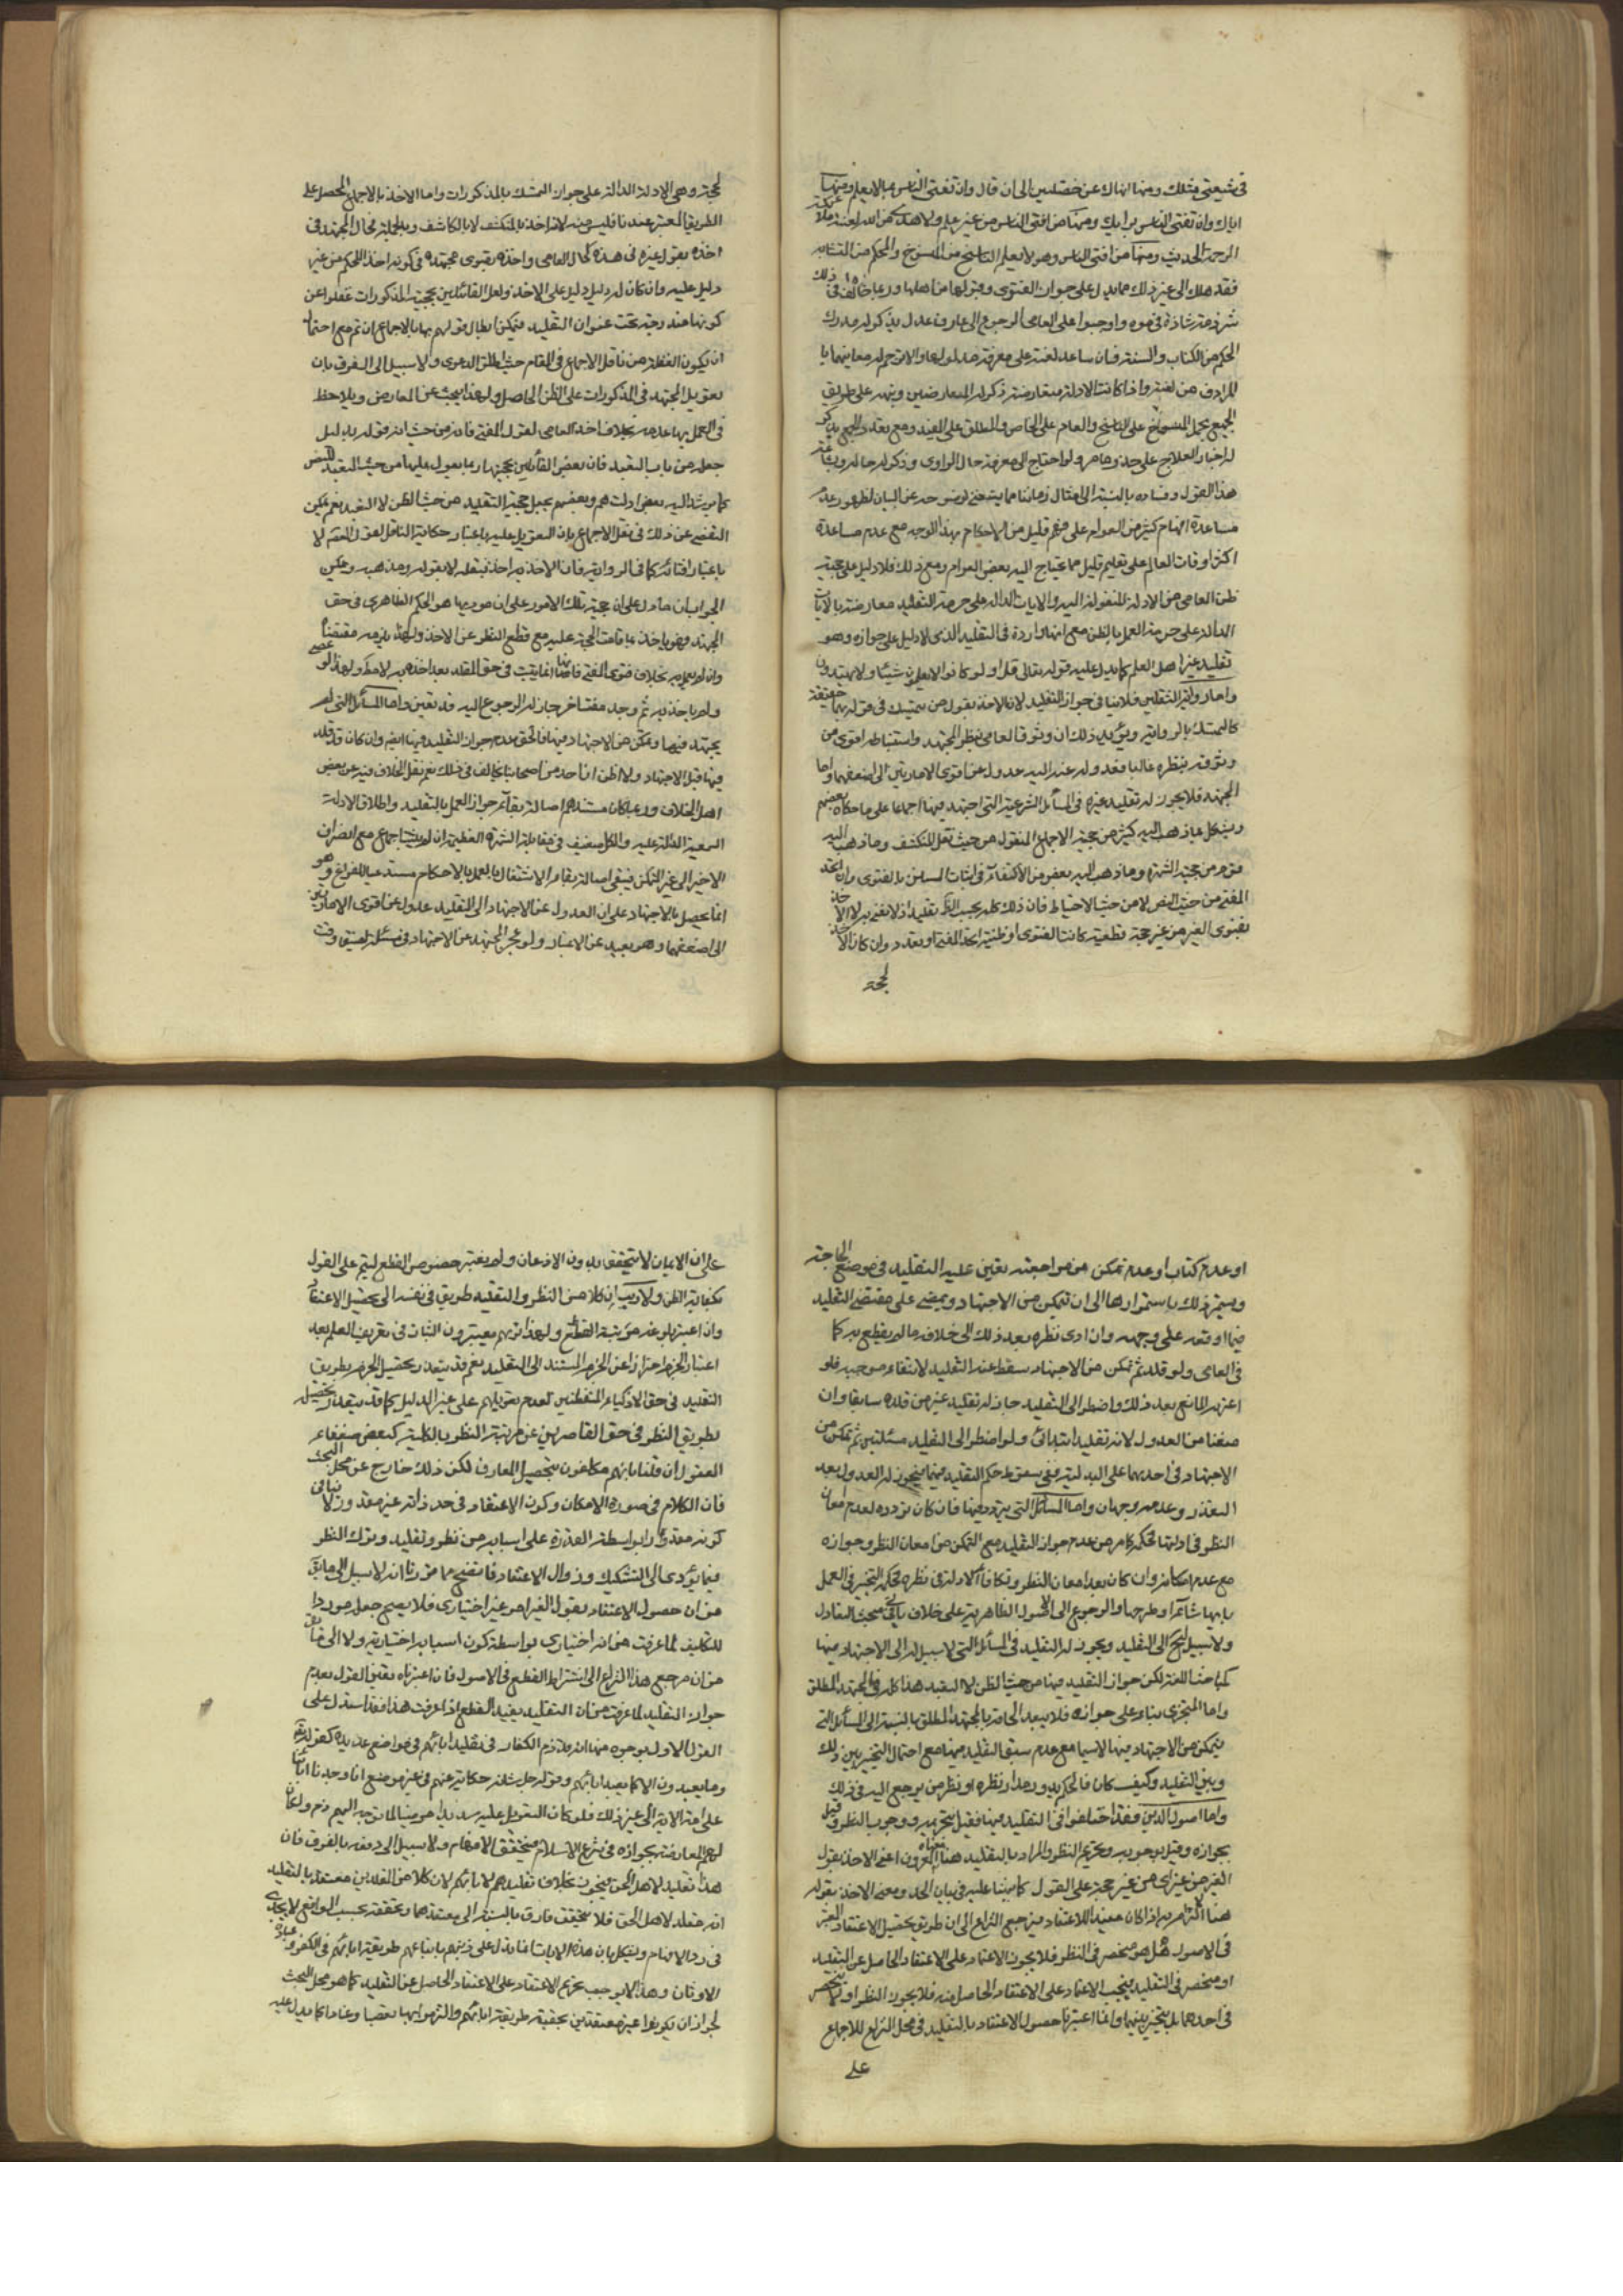 في شيعتي مثلك ومنها انهاك عن خصلتين الى ان قال وان تفتي الناس بما لا يعلم ومنها
اياك وان تفتي الناس برايك ومنها من افتى الناس من غير علم ولا هدى من الله لعنته ملائكة
الرحمة الحديث ومنها من افتى الناس وهو لا يعلم الناسخ من المنسوخ والمحكم من المتشابه
فقد هلك الى غير ذلك مما يدل على جواز الفتوى وقبولها من اهلها وربما خالف في ذلك
شرذمة شاذة فـ واوجبوا على العامي الرجوع الى عارف عدل يذكر له مدرك
الحكم من الكتاب والسنة فان ساعد لغته على معرفة مدلولهما والا ترجم له معانيهما با
لمرادف من لغته واذا كانت الادلة متعارضة ذكر له المتعارضين ونبهه على طريق
الجمع بحمل المنسوخ على الناسخ والعام على الخاص والمطلق على المقيد ومع تعذر الجمع يذكر
له اخبار العلاج على حذو ما مر ولو احتاج الى معرفة حال الراوي وذكر له حاله وبشاعة
هذا القول وفساده بالنسبة الى امثال زماننا مما يستغنى لوضوحه عن البيان لظهور عدم
مساعدة افهام كثير من العوام على فهم قليل من الاحكام بهذا الوجه مع عدم مساعدة
اكثر اوقات العالم على تعليم قليل مما يحتاج اليه بعض العوام ومع ذلك فلا دليل على حجية
ظن العامي من الادلة المنقولة اليه والايات الدالة على حرمة التقليد معارضة بالايات
الدالة على حرمة العمل بالظن مع انها واردة في التقليد الذي لا دليل على جوازه وهو
تقليد غير اهل العلم كما يدل عليه قوله تعالى قل اولو كانوا لا يعلمون شيئا ولا يهتدون
واما رواية الثقلين فلا ينافي جواز التقليد لان الاخذ بقول من يتمسك في قوله بهما حقيقة
كالتمسك بالرواية ويؤيد ذلك ان وثوق العامي بنظر المجتهد واستنباطه اقوى من
وثوقه بنظره غالبا فعدوله عنه اليه عدول عن اقوى الامارتين الى اضعفهما واما
المجتهد فلا يجوز له تقليد غيره في المسائل الشرعية التي اجتهد فيها اجماعا على ما حكاه بعضهم
ويشكل بما ذهب اليه كثير من حجية الاجماع المنقول من حيث نقل المنكشف وما ذهب اليه
قوم من حجية الشهرة وما ذهب اليه بعض من الاكتفاء في اثبات السنن بالفتوى وان اتحد
المفتي من حيث النص لا من حيث الاحتياط فان ذلك كله بحسب الظ تقليد اذ لا نعني به الا الاخذ
بفتوى الغير من غير حجة قطعية كانت الفتوى او ظنية اتحد المفتي او تعدد وان كان الاخذ
لحجة
لحجة وهي الادلة الدالة على جواز التمسك بالمذكورات واما الاخذ بالاجماع المحصل على
الطريقة المعتبرة عندنا فليس منه لانه اخذ بالمنكشف لا بالكاشف وبالجملة فحال المجتهد في
اخذه بقول غيره في هذه كحال العامي واخذه بفتوى مجتهده في كونه اخذ للحكم من غير
دليل عليه وان كان له دليل دليل على الاخذ ولعل القائلين بحجية المذكورات غفلوا عن
كونها مندرجة تحت عنوان التقليد فيمكن ابطال قولهم بها بالاجماع ان تم مع احتمال
ان يكون الغفلة من ناقل الاجماع في المقام حيث اطلق الدعوى ولا سبيل الى الفرق بان
تعويل المجتهد في المذكورات على الظن الحاصل ولهذا يبحث عن المعارض ويلاحظ
في العمل بها عدمه بخلاف اخذ العامي لقول المفتي فانه من حيث انه قوله بدليل
جعله من باب التعبد فان بعض القائلين بحجيتها ربما يعول عليها من حيث التعبد للنص
كما يرشد اليه بعض ادلتهم وبعضهم يجعل حجية التقليد من حيث الظن لا التعبد نعم يمكن
التفصي عن ذلك في نقل الاجماع بان التعويل عليه باعتبار حكاية الناقل لقول المعصوم لا
باعتبار افتائه كما في الرواية فان الاخذ به اخذ بنقله لا بقوله ومذهبه ويمكن
الجواب بان ما دل على ان حجية تلك الامور على ان موديها هو الحكم الظاهري في حق
المجتهد فهو ياخذ بما قامت الحجة عليه مع قطع النظر عن الاخذ ولهذا يلزمه مقتضاها
وان لم يعمل به بخلاف فتوى المفتي فانها انما يثبت في حق المقلد بعد اخذه به لا مطلقا ولهذا لو عصى
ولم ياخذ به ثم وجد مفتيا اخر جاز له الرجوع اليه وقد تعين واما المسائل التي لم
يجتهد فيها وتمكن من الاجتهاد فيها فالحق عدم جواز التقليد فيها ايضا وان كان قد قلد
فيها قبل الاجتهاد ولا اظن ان احدا من اصحابنا يخالف في ذلك نعم نقل الخلاف فيه عن بعض
اهل الخلاف وربما كان مستندهم اصالة بقاء جواز العمل بالتقليد واطلاق الادلة
السمعية الدالة عليه والكل ضعيف في مقابلة الشهرة العظيمة ان لم يثبت اجماع مع انصراف
الاخير الى غير المتمكن فيبقى اصالة بقاء الاشتغال بالعمل بالاحكام مستدعيا للفراغ وهو
انما يحصل بالاجتهاد على ان العدول عن الاجتهاد الى التقليد عدول عن اقوى الامارتين
الى اضعفهما وهو بعيد عن الاعتبار ولو عجز المجتهد عن الاجتهاد في مسئلة لضيق وقت
او عدم كتاب او عدم تمكن من مراجعته تعين عليه التقليد في موضع الحاجة
ويستمر ذلك باستمرارها الى ان يتمكن من الاجتهاد ويمضي على مقتضى التقليد
فيما اوقعه على وجهه وان ادى نظره بعد ذلك الى خلافه ما لم يقطع به كما
في العامي ولو قلد ثم تمكن من الاجتهاد سقط عنه التقليد لانتفاء موجبه فلو
اعتراه المانع بعد ذلك واضطر الى التقليد جاز له تقليد غير من قلده سابقا وان
منعنا من العدول لانه تقليد ابتدائي ولو اضطر الى التقليد مسئلتين ثم تمكن من
الاجتهاد في احدهما على البدلية ففي سقوط حكم التقليد فيهما فيجوز له العدول بعد
التعذر وعدمه وجهان واما المسائل التي يتردد فيها فان كان تردده لعدم امعان
النظر في ادلتها فحكمه كما مر من عدم جواز التقليد مع التمكن من امعان النظر وجوازه
مع عدم امكانه وان كان بعد امعان النظر وتكافأ الادلة في نظره فحكمه التخيير في العمل
بايهما شاء او طرحهما والرجوع الى الاصول الظاهرية على خلاف ياتي في مبحث التعادل
ولا سبيل له ح الى التقليد ويجوز له التقليد في المسائل التي لا سبيل له الى الاجتهاد فيها
كمباحث اللغة لكن جواز التقليد فيها من حيث الظن لا التعبد هذا كله في المجتهد المطلق
واما المتجزي بناء على جوازه فلا يبعد الحاقه بالمجتهد المطلق بالنسبة الى المسائل التي
يتمكن من الاجتهاد فيها لا سيما مع عدم سبق التقليد فيها مع احتمال التخيير بين ذلك
وبين التقليد وكيف كان فالحكم يدور مدار نظره او نظر من يرجع اليه في ذلك
واما اصول الدين فقد اختلفوا في التقليد فيها فقيل بتحريمه ووجوب النظر وقيل
بجوازه وقيل بوجوبه وتحريم النظر والمراد بالتقليد هنا معناه المعروف اعني الاخذ بقول
الغير من غير حجة على القول كما نبهنا عليه في بيان الحد ومعنى الاخذ بقوله
هنا الالتزام به اذا كان مفيدا للاعتقاد فيرجع النزاع الى ان طريق تحصيل الاعتقاد المعتبر
في الاصول هل هو منحصر في النظر فلا يجوز الاعتماد على الاعتقاد الحاصل عن التقليد
او منحصر في التقليد فيجب الاعتماد على الاعتقاد الحاصل منه فلا يجوز النظر او لا ينحصر
في احدهما بل يتخير بينهما وانما اعتبرنا حصول الاعتقاد بالتقليد في محل النزاع للاجماع
على
على ان الايمان لا يتحقق بدون الاذعان ولم يعتبر خصوص القطع ليتم على القول
بكفاية الظن ولا ريب ان كلا من النظر والتقليد طريق في نفسه الى تحصيل الاعتقاد
وان اعتبر بلوغه مرتبة القطع ولهذا تريهم يعتبرون الثبات في تعريف العلم بعد
اعتبار الجزم احترازا عن الجزم المستند الى التقليد نعم قد يتعذر تحصيل الجزم بطريق
التقليد في حق الاذكياء المتفطنين لعدم تعويلهم على غير الدليل كما قد يتعذر تحصيله
بطريق النظر في حق القاصرين عن مرتبة النظر بالكلية كبعض ضعفاء
العقول ان قلنا بانهم مكلفون بتحصيل المعارف لكن ذلك خارج عن محل البحث
فان الكلام في صورة الامكان وكون الاعتقاد في حد ذاته غير مقدور لا ينافي
كونه مقدورا بواسطة القدرة على اسبابه من نظر وتقليد وترك النظر
فيما يؤدي الى التشكيك وزوال الاعتقاد فاتضح مما قررنا انه لا سبيل الى ما يق
من ان حصول الاعتقاد بقول الغير امر غير اختياري فلا يصح جعله موردا
للتكليف لما عرفت من انه اختياري بواسطة كون اسبابه اختيارية ولا الى ما يق
من ان مرجع هذا النزاع الى اشتراط القطع في الاصول فان اعتبرناه تعين القول بعدم
جواز التقليد لما عرفت من ان التقليد يفيد القطع اذا عرفت هذا فقد استدل على
القول الاول بوجوه منها انه تعالى ذم الكفار في تقليد ابائهم في مواضع عديدة كقوله تعالى
وما يعبدون الا كما يعبد اباؤهم وقوله جل شانه حكاية عنهم في غير موضع انا وجدنا اباءنا
على امة الاية الى غير ذلك فلو كان التعويل عليه سديدا مرضيا لما توجه اليهم ذم ولكان
لهم المعارضة بجوازه في شرع الاسلام فيتحقق الافحام ولا سبيل الى دفعه بالفرق فان
هذا تقليد لاهل الحق فيجوز بخلاف تقليدهم لابائهم لان كلا من المقلدين معتقد بالتقليد
انه مقلد لاهل الحق فلا يتحقق فارق بالنسبة الى معتقدهما وتحققه بحسب الواقع لا يجدي
في رد الافحام ويشكل بان هذه الايات انما يدل على ذمهم باتباعهم طريقة ابائهم في الكفر وعبادة
الاوثان وهذا لا يوجب تحريم الاعتقاد على الاعتقاد الحاصل عن التقليد كما هو محل البحث
لجواز ان يكونوا غير معتقدين بحقية طريقة ابائهم والتزموا بها تعصبا وعنادا كما يدل عليه